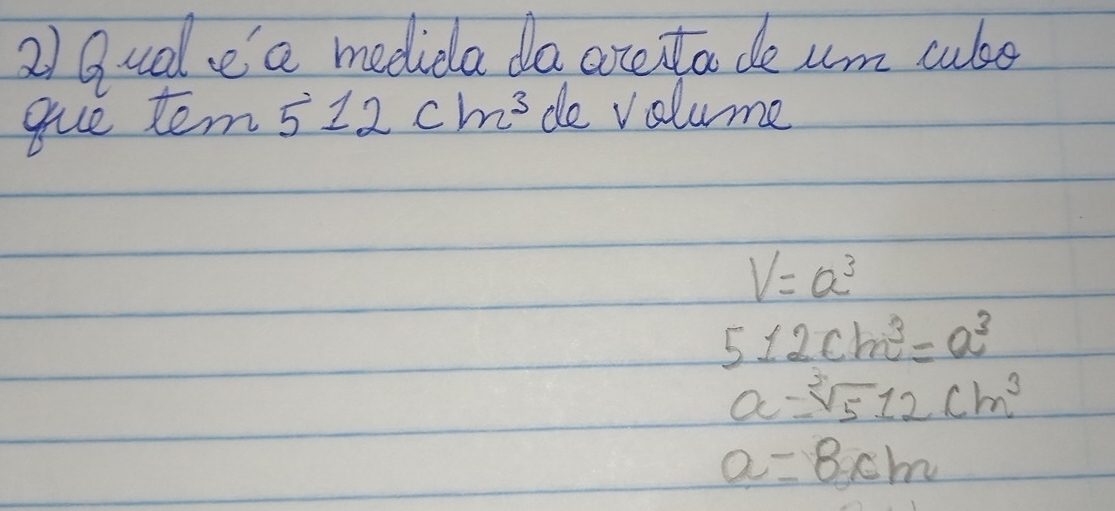 2) Qual é a medida da aresta de um cubo
que tem 512 cm³ de volume
V = a³
512 cm³ = a³
a = ³√512 cm³
a = 8 cm